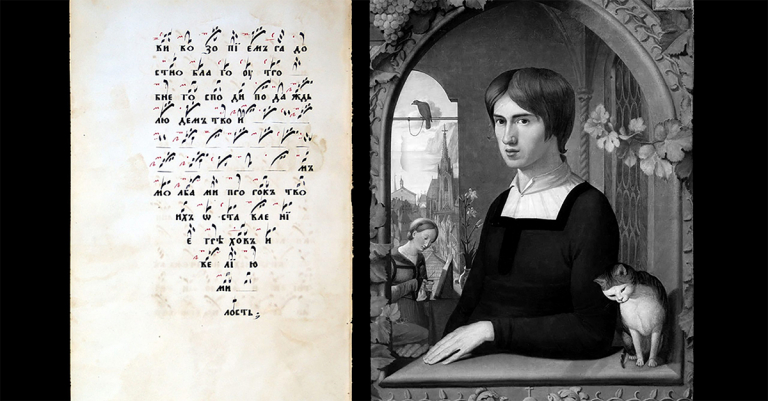 ко во пї емъ ра до
стно бла го оу тро
бне го спо ди по да ждь
лю демъ тво и
мъ
мо лба ми про рокъ тво
ихъ ѡ ста вле нї
е грѣ ховъ и
ве лї ю
ми
лость